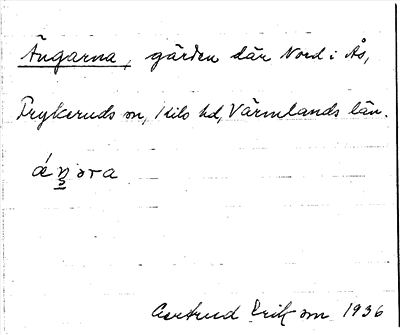 Ängarna, gården där Nord i Ås,
Frykeruds sn, Kils hd, Värmlands län.
Gertrud Erikson 1936